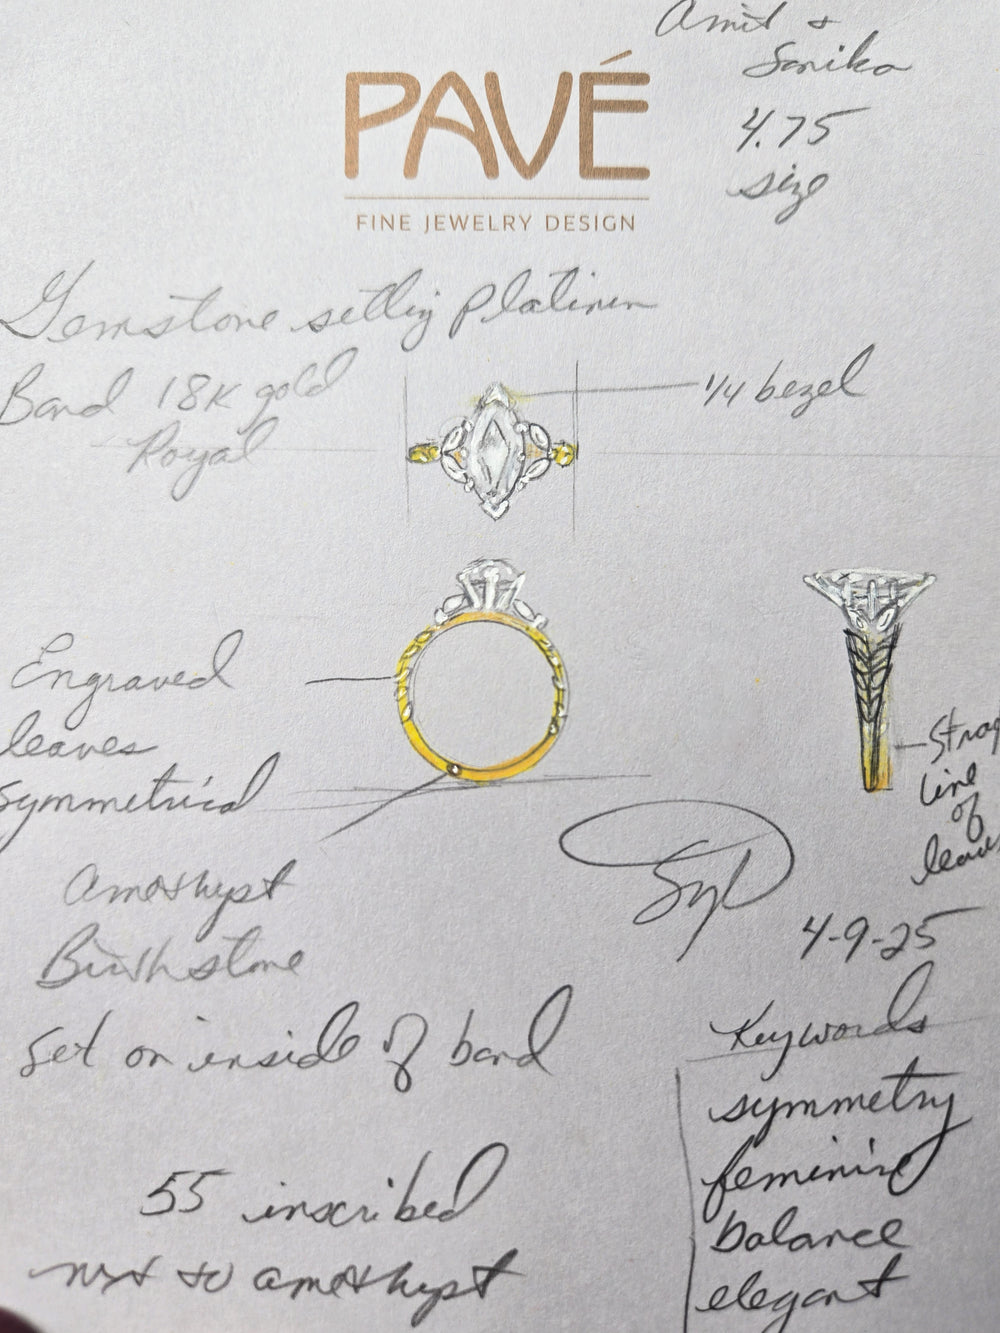 Amit +
Sonika
4.75
size
PAVÉ
FINE JEWELRY DESIGN
Gemstone setting platinum
Band 18K gold
Royal
1/4 bezel
Engraved
leaves
symmetrical
line
of
Amethyst
Birthstone
set on inside of band
4-9-25
Keywords
symmetry
feminine
balance
elegant
55 inscribed
next to amethyst